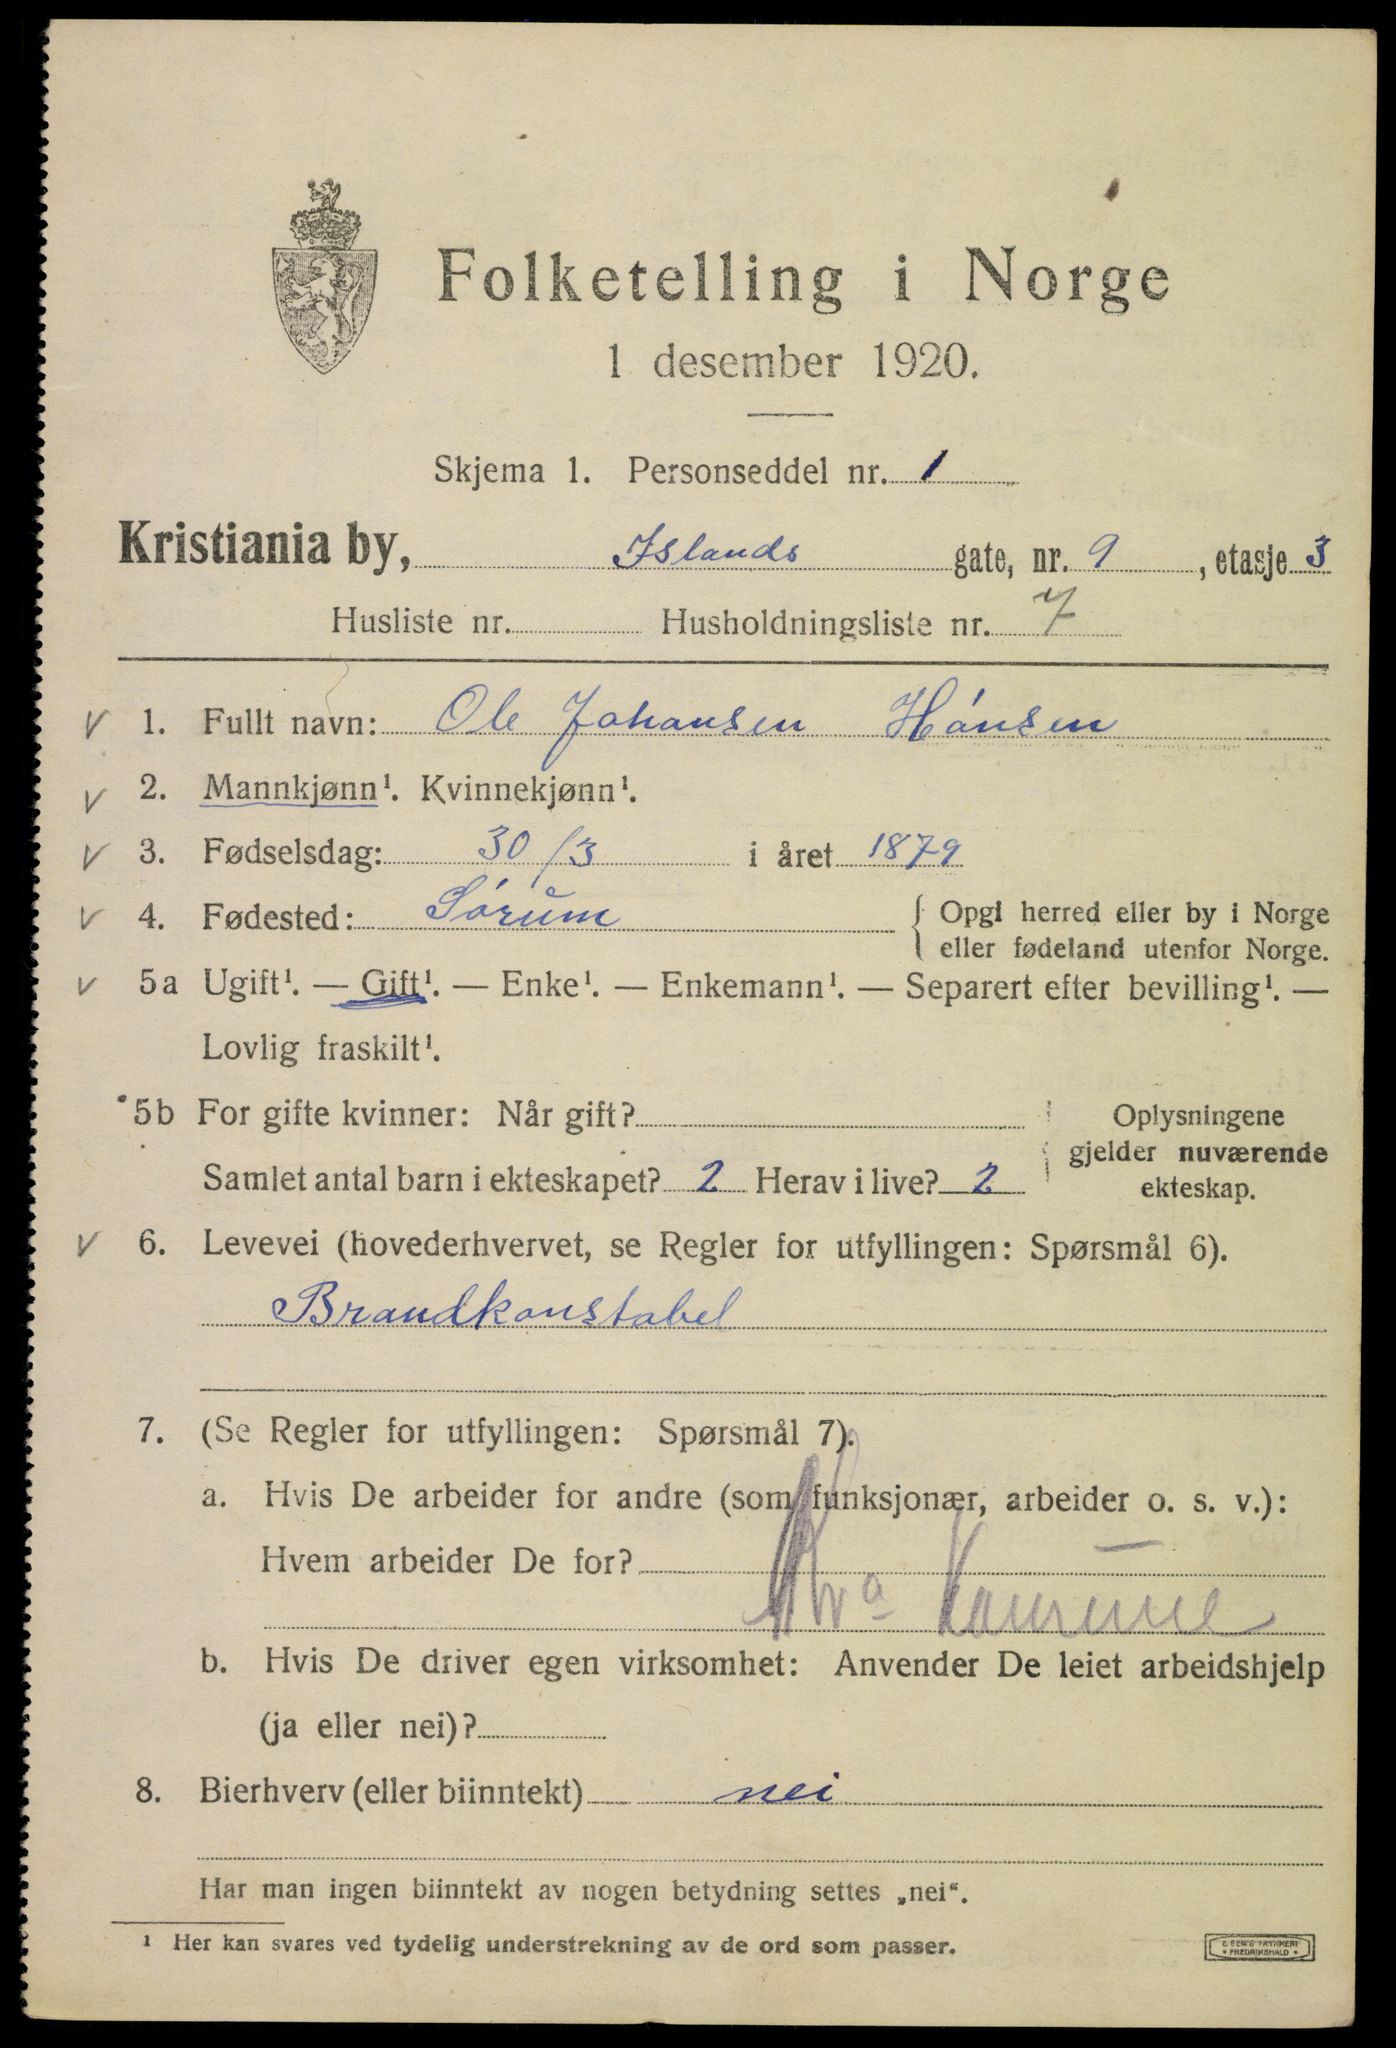 Folketelling i Norge
1 desember 1920.
Skjema 1. Personseddel nr. 1
Kristiania by, Islands gate, nr. 9, etasje 3
Husliste nr. Husholdningsliste nr. 7
✓ 1. Fullt navn: Ole Johansen Hansen
✓ 2. Mannkjønn¹. Kvinnekjønn¹.
✓ 3. Fødselsdag: 30/3 i året 1879
✓ 4. Fødested: Sørum { Opgi herred eller by i Norge
eller fødeland utenfor Norge.
✓ 5a Ugift¹. — Gift¹. — Enke¹. — Enkemann¹. — Separert efter bevilling¹. —
Lovlig fraskilt¹.
5b For gifte kvinner: Når gift? Oplysningene
gjelder nuværende
Samlet antal barn i ekteskapet? 2 Herav i live? 2 ekteskap.
✓ 6. Levevei (hovederhvervet, se Regler for utfyllingen: Spørsmål 6).
Brandkonstabel
7. (Se Regler for utfyllingen: Spørsmål 7).
a. Hvis De arbeider for andre (som funksjonær, arbeider o. s. v.):
Hvem arbeider De for?
Kra Kommune
b. Hvis De driver egen virksomhet: Anvender De leiet arbeidshjelp
(ja eller nei)?
8. Bierhverv (eller biinntekt) nei
Har man ingen biinntekt av nogen betydning settes „nei“.
¹ Her kan svares ved tydelig understrekning av de ord som passer.
TRYKKERI
FREDRIKSHALD